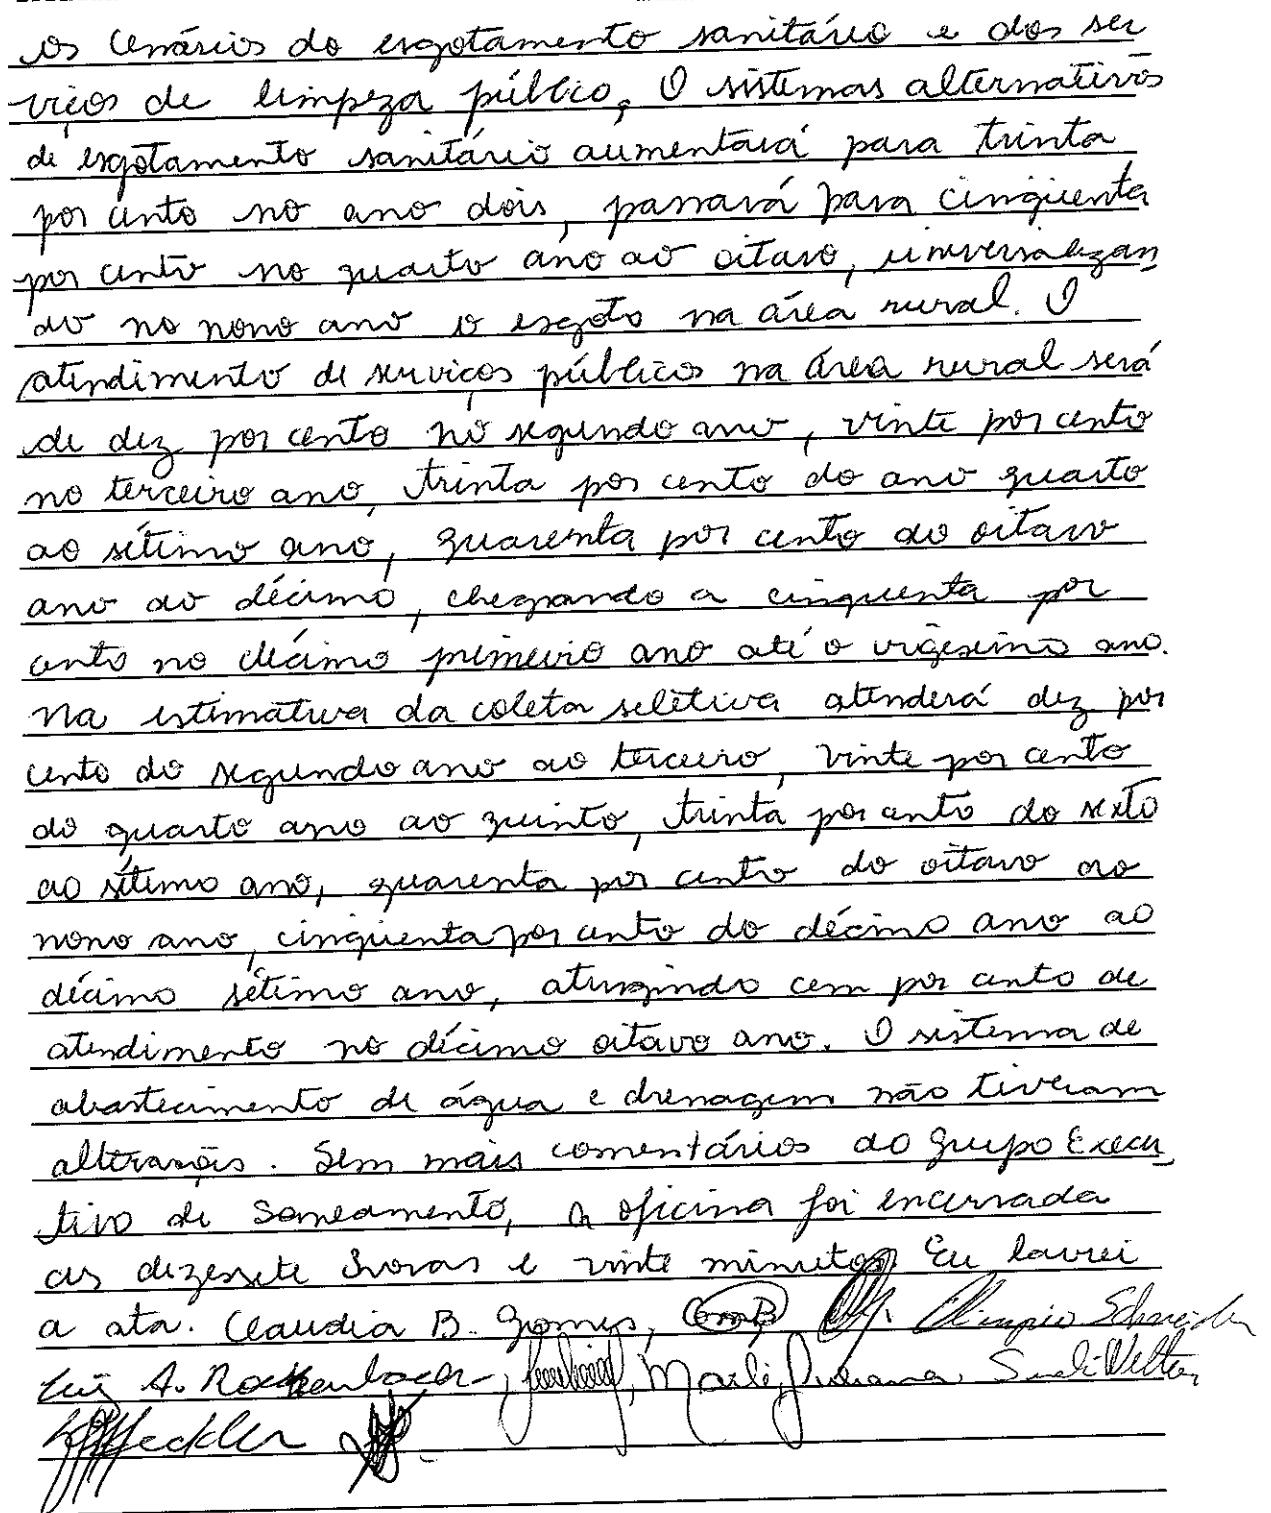 os cenários do esgotamento sanitário e dos ser
viços de limpeza público, O sistemas alternativos
de esgotamento sanitário aumentará para trinta
por cento no ano dois, passará para cinqüenta
por cento no quarto ano ao oitavo, universalizan
do no nono ano o esgoto na área rural. O
atendimento de serviços públicos na área rural será
de dez por cento no segundo ano, vinte por cento
no terceiro ano, trinta por cento do ano quarto
ao sétimo ano, quarenta por cento do oitavo
ano ao décimo, chegando a cinquenta por
cento no décimo primeiro ano até o vigésimo ano.
Na estimativa da coleta seletiva atenderá dez por
cento do segundo ano ao terceiro, vinte por cento
do quarto ano ao quinto, trinta por cento do sexto
ao sétimo ano, quarenta por cento do oitavo ao
nono ano, cinqüenta por cento do décimo ano ao
décimo sétimo ano, atingindo cem por cento de
atendimento no décimo oitavo ano. O sistema de
abastecimento de água e drenagem não tiveram
alterações. Sem mais comentários do grupo Execu
tivo de Saneamento, a oficina foi encerrada
as dezessete horas e vinte minutos. Eu lavrei
a ata. Claudia B. Gomes, Olimpio Schneider
Luiz A. Rockenbach, Marli Juliana Sueli Welter
Heckler